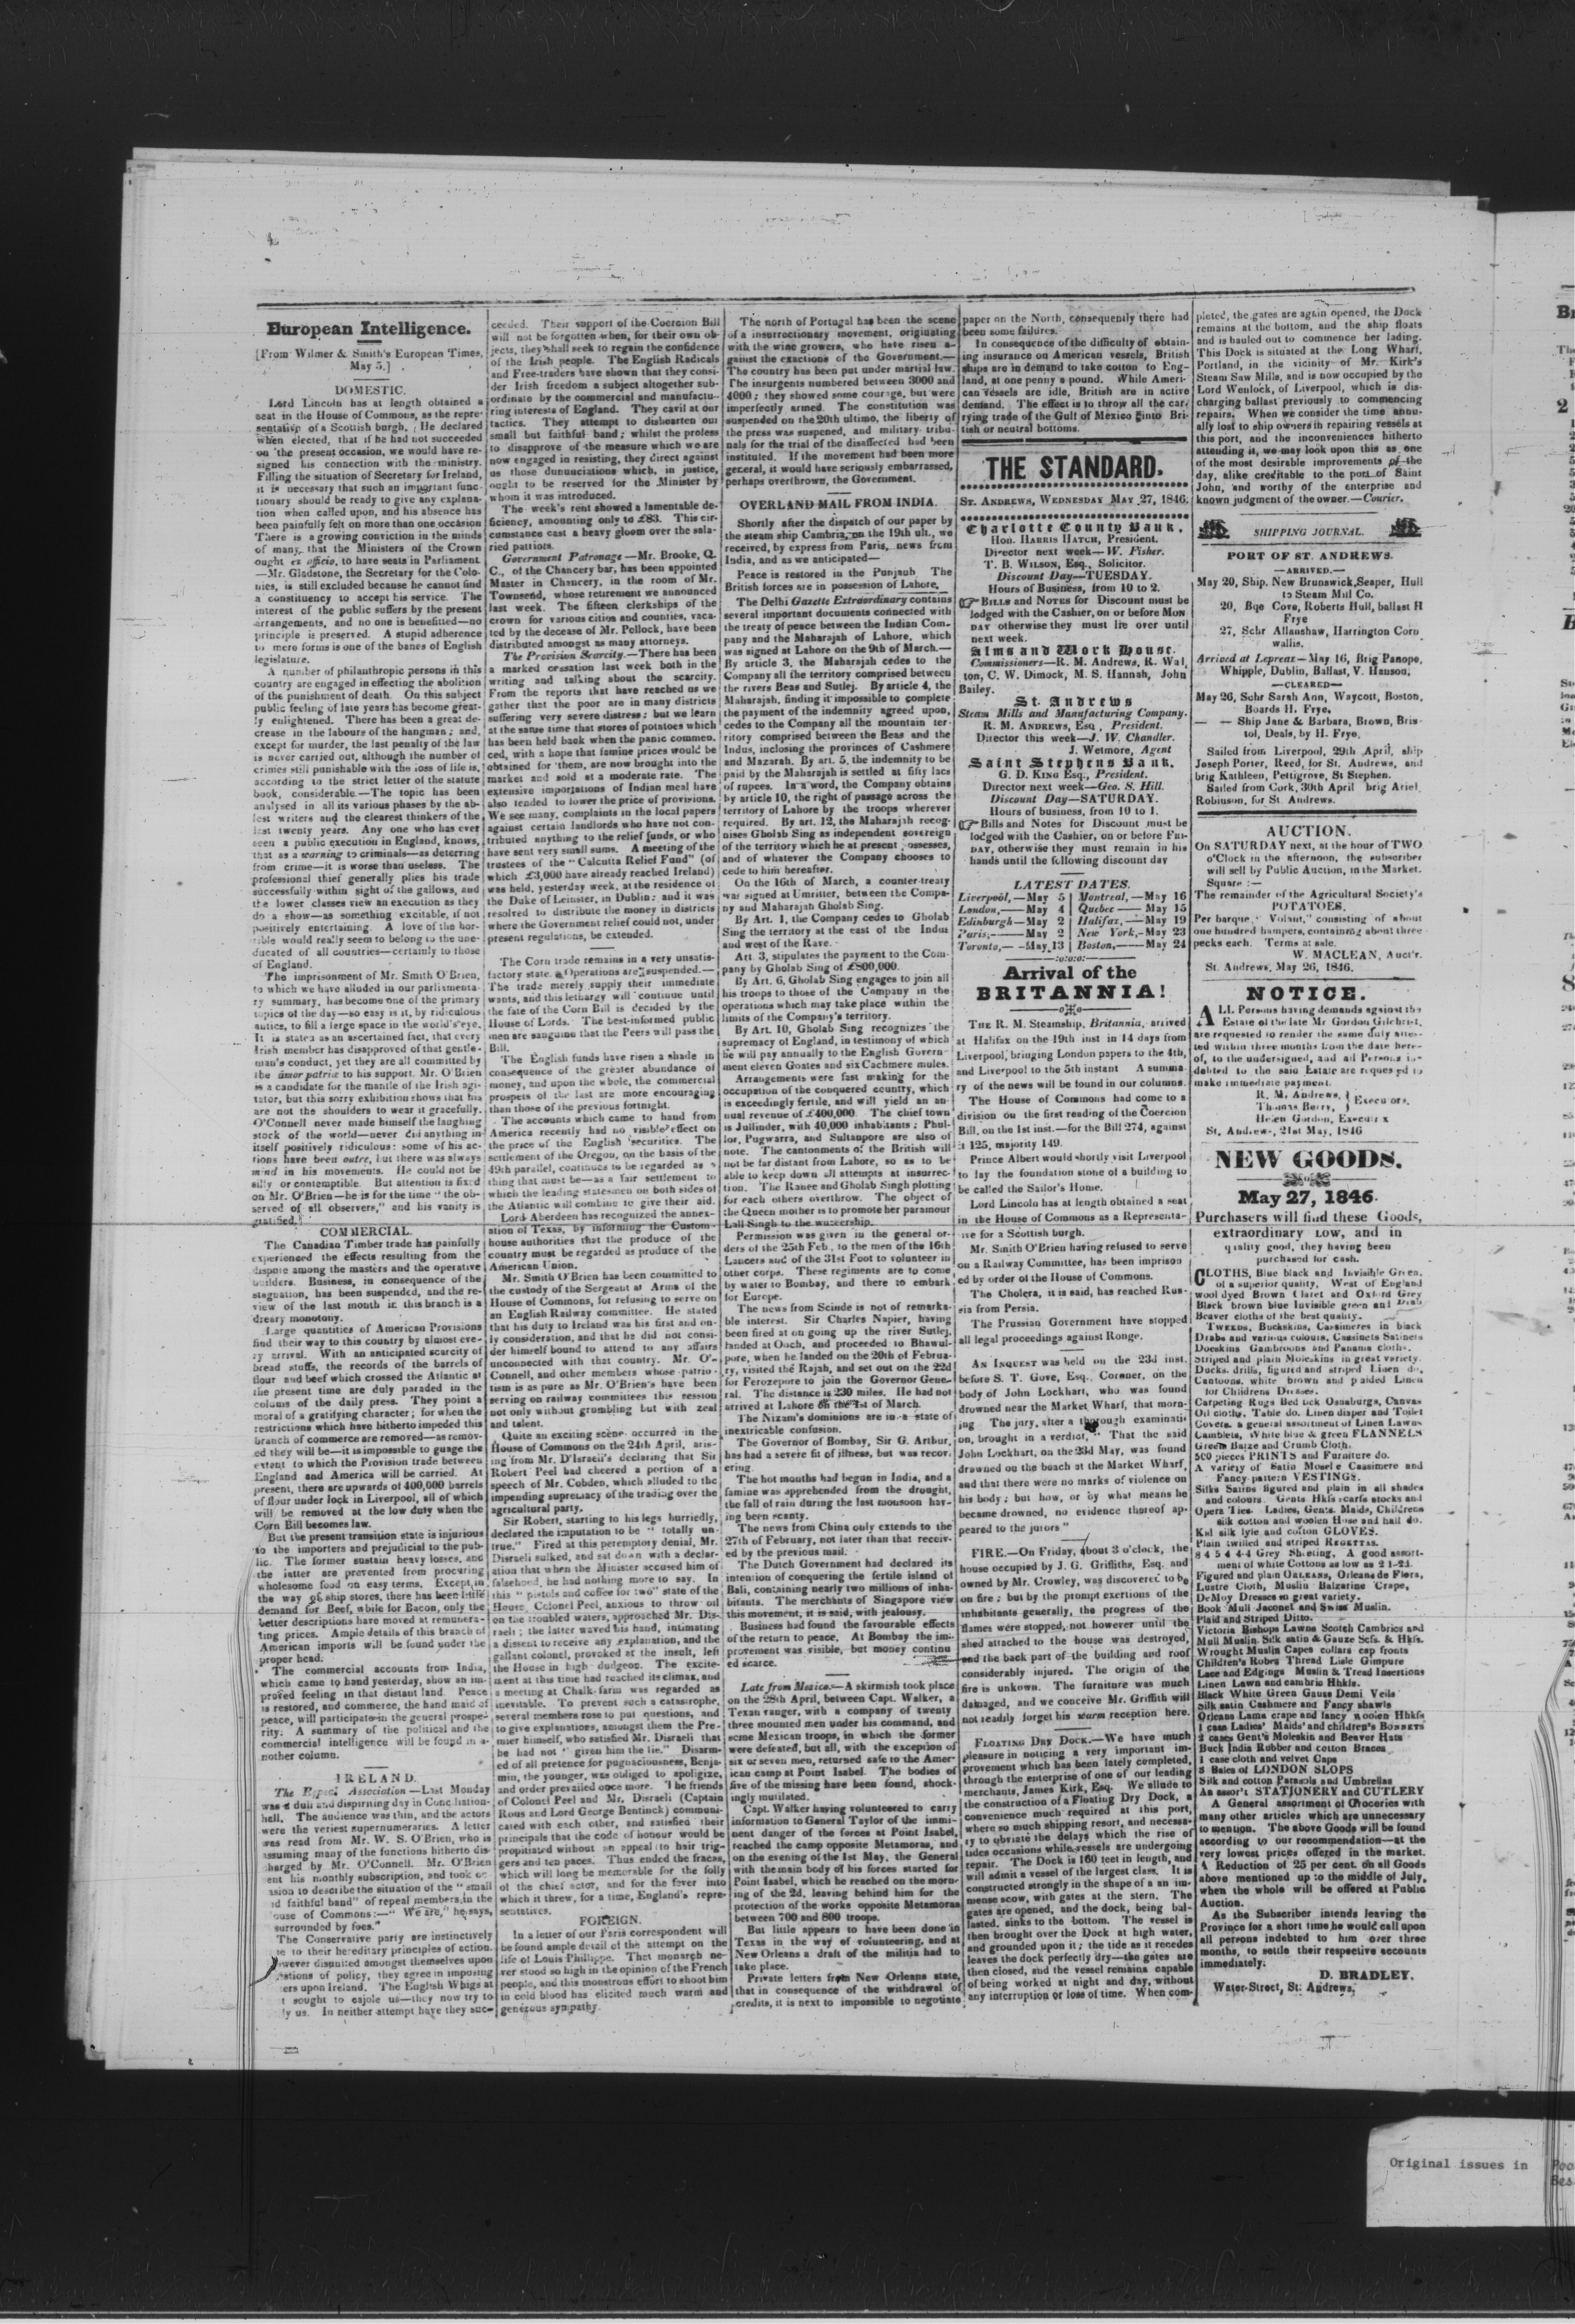 European Intelligence.
[From Wilmer & Smith's European Times,
May 5.]
DOMESTIC.
Lord Lincoln has at length obtained a
seat in the House of Commons, as the repre-
sentative of a Scottish burgh. He declared
when elected, that if he had not succeeded
on the present occasion, we would have re-
signed his connection with the ministry.
Filling the situation of Secretary for Ireland,
it is necessary that such an important func-
tionary should be ready to give any explana-
tion when called upon, and his absence has
been painfully felt on more than one occasion
There is a growing conviction in the minds
of many, that the Ministers of the Crown
ought ex officio, to have seats in Parliament
—Mr. Gladstone, the Secretary for the Colo-
nies, is still excluded because he cannot find
a constituency to accept his service. The
interest of the public suffers by the present
arrangements, and no one is benefitted—no
principle is preserved. A stupid adherence
to mere forms is one of the banes of English
legislature.
A number of philanthropic persons in this
country are engaged in effecting the abolition
of the punishment of death. On this subject
public feeling of late years has become great-
ly enlightened. There has been a great de-
crease in the labours of the hangman; and,
except for murder, the last penalty of the law
is never carried out, although the number of
crimes still punishable with the loss of life is,
according to the strict letter of the statute
book, considerable.—The topic has been
analysed in all its various phases by the ab-
lest writers and the clearest thinkers of the
last twenty years. Any one who has ever
seen a public execution in England, knows,
that as a warning to criminals—as deterring
from crime—it is worse than useless. The
professional thief generally plies his trade
successfully within sight of the gallows, and
the lower classes view an execution as they
do a show—as something excitable, if not
positively entertaining. A love of the hor-
rible would really seem to belong to the une-
ducated of all countries—certainly to those
of England.
The imprisonment of Mr. Smith O'Brien,
to which we have alluded in our parliamenta-
ry summary, has become one of the primary
topics of the day—so easy is it, by ridiculous
antics, to fill a large space in the world's eye.
It is stated as an ascertained fact, that every
Irish member has disapproved of that gentle-
man's conduct, yet they are all committed by
the amor patriæ to his support. Mr. O'Brien
is a candidate for the mantle of the Irish agi-
tator, but this sorry exhibition shows that his
are not the shoulders to wear it gracefully.
O'Connell never made himself the laughing
stock of the world—never did anything in
itself positively ridiculous: some of his ac-
tions have been outre, but there was always
mind in his movements. He could not be
silly or contemptible. But attention is fixed
on Mr. O'Brien—he is for the time "the ob-
served of all observers," and his vanity is
gratified.
COMMERCIAL.
The Canadian Timber trade has painfully
experienced the effects resulting from the
dispute among the masters and the operative
builders. Business, in consequence of the
stagnation, has been suspended, and the re-
view of the last month in this branch is a
dreary monotony.
Large quantities of American Provisions
find their way to this country by almost eve-
ry arrival. With an anticipated scarcity of
bread stuffs, the records of the barrels of
flour and beef which crossed the Atlantic at
the present time are duly paraded in the
colums of the daily press. They point a
moral of a gratifying character; for when the
restrictions which have hitherto impeded this
branch of commerce are removed—as remov-
ed they will be—it is impossible to guage the
extent to which the Provision trade between
England and America will be carried. At
present, there are upwards of 400,000 barrels
of flour under lock in Liverpool, all of which
will be removed at the low duty when the
Corn Bill becomes law.
But the present transition state is injurious
to the importers and prejudicial to the pub-
lic. The former sustain heavy losses, and
the latter are prevented from procuring
wholesome food on easy terms. Except in
the way of ship stores, there has been little
demand for Beef, while for Bacon, only the
better descriptions have moved at remunera-
ting prices. Ample details of this branch of
American imports will be found under the
proper head.
The commercial accounts from India,
which came to hand yesterday, show an im-
proved feeling in that distant land. Peace
is restored, and commerce, the hand maid of
peace, will participate in the general prospe-
rity. A summary of the political and the
commercial intelligence will be found in a-
nother column.
IRELAND.
The Repeal Association.—Last Monday
was a dull and dispiriting day in Conciliation-
hall. The audience was thin, and the actors
were the veriest supernumeraries. A letter
was read from Mr. W. S. O'Brien, who is
assuming many of the functions hitherto dis-
charged by Mr. O'Connell. Mr. O'Brien
ent his monthly subscription, and took oc
asion to describe the situation of the "small
d faithful band" of repeal members in the
ouse of Commons:—"We are," he says,
surrounded by foes."
The Conservative party are instinctively
e to their hereditary principles of action.
owever disunited amongst themselves upon
estions of policy, they agree in imposing
ers upon Ireland. The English Whigs at
t sought to cajole us—they now try to
ly us. In neither attempt have they suc-
ceeded. Their support of the Coercion Bill
will not be forgotten when, for their own ob-
jects, they shall seek to regain the confidence
of the Irish people. The English Radicals
and Free-traders have shown that they consi-
der Irish freedom a subject altogether sub-
ordinate by the commercial and manufactu-
ring interests of England. They cavil at our
tactics. They attempt to dishearten our
small but faithful band; whilst the profess
to disapprove of the measure which we are
now engaged in resisting, they direct against
us those dununciations which, in justice,
ought to be reserved for the Minister by
whom it was introduced.
The week's rent showed a lamentable de-
ficiency, amounting only to £83. This cir-
cumstance cast a heavy gloom over the sala-
ried patriots.
Government Patronage—Mr. Brooke, Q.
C., of the Chancery bar, has been appointed
Master in Chancery, in the room of Mr.
Townsend, whose retirement we announced
last week. The fifteen clerkships of the
crown for various cities and counties, vaca-
ted by the decease of Mr. Pollock, have been
distributed amongst as many attorneys.
The Provision Scarcity.—There has been
a marked cessation last week both in the
writing and talking about the scarcity.
From the reports that have reached us we
gather that the poor are in many districts
suffering very severe distress; but we learn
at the same time that stores of potatoes which
has been held back when the panic commen-
ced, with a hope that famine prices would be
obtained for them, are now brought into the
market and sold at a moderate rate. The
extensive importations of Indian meal have
also tended to lower the price of provisions.
We see many, complaints in the local papers
against certain landlords who have not con-
tributed anything to the relief funds, or who
have sent very small sums. A meeting of the
trustees of the "Calcutta Relief Fund" (of
which £3,000 have already reached Ireland)
was held, yesterday week, at the residence of
the Duke of Leinster, in Dublin; and it was
resolved to distribute the money in districts
where the Government relief could not, under
present regulations, be extended.
The Corn trade remains in a very unsatis-
factory state. Operations are suspended.—
The trade merely supply their immediate
wants, and this lethargy will continue until
the fate of the Corn Bill is decided by the
House of Lords. The best-informed public
men are sanguine that the Peers will pass the
Bill.
The English funds have risen a shade in
consequence of the greater abundance of
money, and upon the whole, the commercial
prospets of the last are more encouraging
than those of the previous fortnight.
The accounts which came to hand from
America recently had no visible effect on
the price of the English securities. The
settlement of the Oregon, on the basis of the
49th parallel, continues to be regarded as a
thing that must be—as a fair settlement to
which the leading statesmen on both sides of
the Atlantic will combine to give their aid.
Lord Aberdeen has recognized the annex-
ation of Texas, by informing the Custom-
house authorities that the produce of the
country must be regarded as produce of the
American Union.
Mr. Smith O'Brien has been committed to
the custody of the Sergeant at Arms of the
House of Commons, for refusing to serve on
an English Railway committee. He stated
that his duty to Ireland was his first and on-
ly consideration, and that he did not consi-
der himself bound to attend to any affairs
unconnected with that country. Mr. O'-
Connell, and other members whose patrio-
tism is as pure as Mr. O'Brien's have been
serving on railway committees this session
not only without grumbling but with zeal
and talent.
Quite an exciting scene occurred in the
House of Commons on the 24th April, aris-
ing from Mr. D'Israeli's declaring that Sir
Robert Peel had cheered a portion of a
speech of Mr. Cobden, which alluded to the
impending supremacy of the trading over the
agricultural party.
Sir Robert, starting to his legs hurriedly,
declared the imputation to be "totally un-
true." Fired at this peremptory denial, Mr.
Disraeli sulked, and sat down with a declar-
ation that when the Minister accused him of
falsehood, he had nothing more to say. In
this "pistols and coffee for two" state of the
House, Colonel Peel, anxious to throw oil
on the troubled waters, approached Mr. Dis-
raeli; the latter waved his hand, intimating
a dissent to receive any explanation, and the
gallant colonel, provoked at the insult, left
the House in high dudgeon. The excite-
ment at this time had reached its climax, and
a meeting at Chalk-farm was regarded as
inevitable. To prevent such a catastrophe,
several members rose to put questions, and
to give explanations, amongst them the Pre-
mier himself, who satisfied Mr. Disraeli that
he had not "given him the lie." Disarm-
ed of all pretence for pugnaciousness, Benja-
min, the younger, was obliged to apoligize,
and order prevailed once more. The friends
of Colonel Peel and Mr. Disraeli (Captain
Rous and Lord George Bentinck) communi-
cated with each other, and satisfied their
principals that the code of honour would be
propitiated without an appeal to hair trig-
gers and ten paces. Thus ended the fracas,
which will long be memorable for the folly
of the chief actor, and for the fever into
which it threw, for a time, England's repre-
sentatives.
FOREIGN.
In a letter of our Paris correspondent will
be found ample detail of the attempt on the
life of Louis Philippe. That monarch ne-
ver stood so high in the opinion of the French
people, and this monstrous effort to shoot him
in cold blood has elicited much warm and
generous sympathy.
The north of Portugal has been the scene
of a insurrectionary movement, originating
with the wine growers, who have risen a-
gainst the exactions of the Government.—
The country has been put under martial law.
The insurgents numbered between 3000 and
4000; they showed some courage, but were
imperfectly armed. The constitution was
suspended on the 20th ultimo, the liberty of
the press was suspended, and military tribu-
nals for the trial of the disaffected had been
instituted. If the movement had been more
general, it would have seriously embarrassed,
perhaps overthrown, the Government.
OVERLAND MAIL FROM INDIA.
Shortly after the dispatch of our paper by
the steam ship Cambria, on the 19th ult., we
received, by express from Paris, news from
India, and as we anticipated—
Peace is restored in the Punjaub The
British forces are in possession of Lahore,
The Delhi Gazette Extraordinary contains
several important documents connected with
the treaty of peace between the Indian Com-
pany and the Maharajah of Lahore, which
was signed at Lahore on the 9th of March.—
By article 3, the Maharajah cedes to the
Company all the territory comprised between
the rivers Beas and Sutlej. By article 4, the
Maharajah, finding it impossible to complete
the payment of the indemnity agreed upon,
cedes to the Company all the mountain ter-
ritory comprised between the Beas and the
Indus, inclosing the provinces of Cashmere
and Mazarah. By art. 5, the indemnity to be
paid by the Maharajah is settled at fifty lacs
of rupees. In a word, the Company obtains
by article 10, the right of passage across the
territory of Lahore by the troops wherever
required. By art. 12, the Maharajah recog-
nises Gholab Sing as independent sovereign
of the territory which he at present possesses,
and of whatever the Company chooses to
cede to him hereafter.
On the 16th of March, a counter-treaty
was signed at Umritter, between the Compa-
ny and Maharajah Gholab Sing.
By Art. 1, the Company cedes to Gholab
Sing the territory at the east of the Indus
and west of the Rave.
Art. 3, stipulates the payment to the Com-
pany by Gholab Sing of £800,000.
By Art. 6, Gholab Sing engages to join all
his troops to those of the Company in the
operations which may take place within the
limits of the Company's territory.
By Art. 10, Gholab Sing recognizes the
supremacy of England, in testimony of which
he will pay annually to the English Govern-
ment eleven Goates and six Cachmere mules.
Arrangements were fast making for the
occupation of the conquered country, which
is exceedingly fertile, and will yield an an-
nual revenue of £400,000. The chief town
is Jullinder, with 40,000 inhabitants; Phul-
lor, Pugwarra, and Sultanpore are also of
note. The cantonments of the British will
not be far distant from Lahore, so as to be
able to keep down all attempts at insurrec-
tion. The Ranee and Gholab Singh plotting
for each others overthrow. The object of
the Queen mother is to promote her paramour
Lall Singh to the wuzeership.
Permission was given in the general or-
ders of the 25th Feb, to the men of the 16th
Lancers and of the 31st Foot to volunteer in
other corps. These regiments are to come
by water to Bombay, and there to embark
for Europe.
The news from Scinde is not of remarka-
ble interest. Sir Charles Napier, having
been fired at on going up the river Sutlej,
landed at Ooch, and proceeded to Bhawul-
pore, when he landed on the 20th of Februa-
ry, visited the Rajah, and set out on the 22d
for Ferozepore to join the Governor Gene-
ral. The distance is 230 miles. He had not
arrived at Lahore on the 1st of March.
The Nizam's dominions are in a state of
inextricable confusion.
The Governor of Bombay, Sir G. Arthur,
has had a severe fit of illness, but was recov-
ering.
The hot months had begun in India, and a
famine was apprehended from the drought,
the fall of rain during the last monsoon hav-
ing been scanty.
The news from China only extends to the
27th of February, not later than that receiv-
ed by the previous mail.
The Dutch Government had declared its
intention of conquering the fertile island of
Bali, containing nearly two millions of inha-
bitants. The merchants of Singapore view
this movement, it is said, with jealousy.
Business had found the favourable effects
of the return to peace. At Bombay the im-
provement was visible, but money continu
ed scarce.
Late from Mexico.—A skirmish took place
on the 28th April, between Capt. Walker, a
Texan ranger, with a company of twenty
three mounted men under his command, and
some Mexican troops, in which the former
were defeated, but all, with the exception of
six or seven men, returned safe to the Amer-
ican camp at Point Isabel. The bodies of
five of the missing have been found, shock-
ingly mutilated.
Capt. Walker having volunteered to carry
information to General Taylor of the immi-
nent danger of the forces at Point Isabel,
reached the camp opposite Metamoras, and
on the evening of the 1st May, the General
with the main body of his forces started for
Point Isabel, which he reached on the morn-
ing of the 2d, leaving behind him for the
protection of the works opposite Metamoras
between 700 and 800 troops.
But little appears to have been done in
Texas in the way of volunteering, and at
New Orleans a draft of the militia had to
take place.
Private letters from New Orleans state,
that in consequence of the withdrawal of
credits, it is next to impossible to negotiate
paper on the North, consequently there had
been some failures.
In consequence of the difficulty of obtain-
ing insurance on American vessels, British
ships are in demand to take cotton to Eng-
land, at one penny a pound. While Ameri-
can vessels are idle, British are in active
demand. The effect is to throw all the car-
rying trade of the Gulf of Mexico into Bri-
tish or neutral bottoms.
THE STANDARD.
ST. ANDREWS, WEDNESDAY MAY 27, 1846.
Charlotte County Bank.
Hon. HARRIS HATCH, President.
Director next week—W. Fisher.
T. B. WILSON, Esq., Solicitor.
Discount Day—TUESDAY.
Hours of Business, from 10 to 2.
BILLS and NOTES for Discount must be
lodged with the Cashier, on or before MON
DAY otherwise they must lie over until
next week.
Alms and Work House.
Commissioners—R. M. Andrews, R. Wal,
ton, C. W. Dimock, M. S. Hannah, John
Bailey.
St. Andrews
Steam Mills and Manufacturing Company.
R. M. ANDREWS, Esq, President.
Director this week—J. W. Chandler.
J. Wetmore, Agent
Saint Stephens Bank.
G. D. KING Esq., President.
Director next week—Geo. S. Hill.
Discount Day—SATURDAY.
Hours of business, from 10 to 1.
Bills and Notes for Discount must be
lodged with the Cashier, on or before FRI-
DAY, otherwise they must remain in his
hands until the following discount day
LATEST DATES.
Liverpool,—May 5 | Montreal,—May 16
London,——May 4 | Quebec——May 15
Edinburgh—May 2 | Halifax,—May 19
Paris,———May 2 | New York,-May 23
Toronto,— -May 13 | Boston,——May 24
Arrival of the
BRITANNIA!
THE R. M. Steamship, Britannia, arrived
at Halifax on the 19th inst in 14 days from
Liverpool, bringing London papers to the 4th,
and Liverpool to the 5th instant A summa
ry of the news will be found in our columns.
The House of Commons had come to a
division on the first reading of the Coercion
Bill, on the 1st inst.—for the Bill 274, against
it 125, majority 149.
Prince Albert would shortly visit Liverpool
to lay the foundation stone of a building to
be called the Sailor's Home.
Lord Lincoln has at length obtained a seat
in the House of Commons as a Representa-
tive for a Scottish burgh.
Mr. Smith O'Brien having refused to serve
on a Railway Committee, has been imprison
ed by order of the House of Commons.
The Cholera, it is said, has reached Rus-
sia from Persia.
The Prussian Government have stopped
all legal proceedings against Ronge.
AN INQUEST was held on the 23d inst,
before S. T. Gove, Esq., Coroner, on the
body of John Lockhart, who was found
drowned near the Market Wharf, that morn-
ing The jury, after a thorough examinati
on, brought in a verdict, "That the said
John Lockhart, on the 23d May, was found
drowned on the beach at the Market Wharf,
and that there were no marks of violence on
his body; but how, or by what means he
became drowned, no evidence thereof ap-
peared to the jurors"
FIRE.—On Friday, about 3 o'clock, the
house occupied by J. G. Griffiths, Esq. and
owned by Mr. Crowley, was discovered to be
on fire; but by the prompt exertions of the
inhabitants generally, the progress of the
flames were stopped, not however until the
shed attached to the house was destroyed,
and the back part of the building and roof
considerably injured. The origin of the
fire is unkown. The furniture was much
damaged, and we conceive Mr. Griffith will
not readily forget his warm reception here.
FLOATING DRY DOCK.—We have much
pleasure in noticing a very important im-
provement which has been lately completed,
through the enterprise of one of our leading
merchants, James Kirk, Esq. We allude to
the construction of a Floating Dry Dock, a
convenience much required at this port,
where so much shipping resort, and necessa-
ry to obviate the delays which the rise of
tides occasions while vessels are undergoing
repair. The Dock is 160 feet in length, and
will admit a vessel of the largest class. It is
constructed strongly in the shape of a an im-
mense scow, with gates at the stern. The
gates are opened, and the dock, being bal-
lasted, sinks to the bottom. The vessel is
then brought over the Dock at high water,
and grounded upon it; the tide as it recedes
leaves the dock perfectly dry—the gates are
then closed, and the vessel remains capable
of being worked at night and day, without
any interruption or loss of time. When com-
pleted, the gates are again opened, the Dock
remains at the bottom, and the ship floats
and is hauled out to commence her lading.
This Dock is situated at the Long Wharf,
Portland, in the vicinity of Mr. Kirk's
Steam Saw Mills, and is now occupied by the
Lord Wenlock, of Liverpool, which is dis-
charging ballast previously to commencing
repairs. When we consider the time annu-
ally lost to ship owners in repairing vessels at
this port, and the inconveniences hitherto
attending it, we may look upon this as one
of the most desirable improvements of the
day, alike creditable to the port of Saint
John, and worthy of the enterprise and
known judgment of the owner.—Courier.
SHIPPING JOURNAL.
PORT OF ST. ANDREWS.
—ARRIVED.—
May 20, Ship. New Brunswick, Seaper, Hull
to Steam Mill Co.
20, Bqe Cove, Roberts Hull, ballast H
Frye
27, Schr Allanshaw, Harrington Corn
wallis.
Arrived at Lepreax—May 16, Brig Panope,
Whipple, Dublin, Ballast, V. Hanson,
—CLEARED—
May 26, Schr Sarah Ann, Waycott, Boston,
Boards H. Frye,
— — Ship Jane & Barbara, Brown, Bris-
tol, Deals, by H. Frye,
Sailed from Liverpool, 29th April, ship
Joseph Porter, Reed, for St. Andrews, and
brig Kathleen, Pettigrove, St Stephen.
Sailed from Cork, 30th April brig Ariel,
Robinson, for St. Andrews.
AUCTION.
On SATURDAY next, at the hour of TWO
o'Clock in the afternoon, the subscriber
will sell by Public Auction, in the Market.
Square:—
The remainder of the Agricultural Society's
POTATOES,
Per barque, "Volant," consisting of about
one hundred hampers, containing about three
pecks each. Terms at sale.
W. MACLEAN, Auct'r.
St. Andrews, May 26, 1846.
NOTICE.
ALL Persons having demands against the
Estate of the late Mr. Gordon Gilchrist,
are requested to render the same duly attes-
ted within three months from the date here-
of, to the undersigned, and all Persons in-
debted to the said Estate are requested to
make immediate payment.
R. M. Andrews, } Executors,
Thomas Berry,
Helen Gordon, Executrix
St. Andrews, 21st May, 1846
NEW GOODS.
May 27, 1846.
Purchasers will find these Goods,
extraordinary LOW, and in
quality good, they having been
purchased for cash.
CLOTHS, Blue black and Invisible Green,
of a superior quality, West of England
wool dyed Brown Claret and Oxford Grey
Black brown blue Invisible green and Drab
Beaver cloths of the best quality.
TWEEDS, Buckskins, Cassimeres in black
Drabs and various colours, Cassinets Satinets
Doeskins Gambroons and Panama cloths,
Striped and plain Moleskins in great variety.
Ducks, drills, figured and striped Linen do,
Cantoons, white brown and plaided Linen
for Childrens Dresses.
Carpeting Rugs Bed tick Osnaburgs, Canvas
Oil cloths, Table do. Linen diaper and Toilet
Covers, a general assortment of Linen Lawns
Camblets, White blue & green FLANNELS
Green Baize and Crumb Cloth.
500 pieces PRINTS and Furniture do.
A variety of Satin Cassimere and
Fancy pattern VESTINGS.
Silks Satins figured and plain in all shades
and colours. Gents Hkfs scarfs stocks and
Opera Ties. Ladies, Gents. Maids, Childrens
silk cotton and woolen Hose and half do.
Kid silk lyle and cotton GLOVES.
Plain twilled and striped REGETTAS.
8 4 5 4 4-4 Grey Sheeting, A good assort-
ment of white Cottons as low as 2 1-2d.
Figured and plain ORLEANS, Orleans de Flora,
Lustre Cloth, Muslin Balzarine Crape,
DeMoy Dresses in great variety.
Book Mull Jaconet and Swiss Muslin.
Plaid and Striped Ditto.
Victoria Bishops Lawns Scotch Cambrics and
Mull Muslin. Silk satin & Gauze Scfs. & Hkfs.
Wrought Muslin Capes collars cap fronts
Children's Robes Thread Lisle Gimpure
Lace and Edgings Muslin & Tread Insertions
Linen Lawn and cambric Hhkfs.
Black White Green Gauze Demi Veils
Silk satin Cashmere and Fancy shawls
Orleans Lama crape and fancy woolen Hhkfs
1 case Ladies' Maids' and children's BONNETS
2 cases Gent's Moleskin and Beaver Hats
Buck India Rubber and cotton Braces
1 case cloth and velvet Caps
3 Bales of LONDON SLOPS
Silk and cotton Parasols and Umbrellas
An assor't STATIONERY and CUTLERY
A General assortment of Groceries with
many other articles which are unnecessary
to mention. The above Goods will be found
according to our recommendation—at the
very lowest prices offered in the market.
A Reduction of 25 per cent. on all Goods
above mentioned up to the middle of July,
when the whole will be offered at Public
Auction.
As the Subscriber intends leaving the
Province for a short time he would call upon
all persons indebted to him over three
months, to settle their respective accounts
immediately.
D. BRADLEY.
Water-Street, St. Andrews,
Original issues in